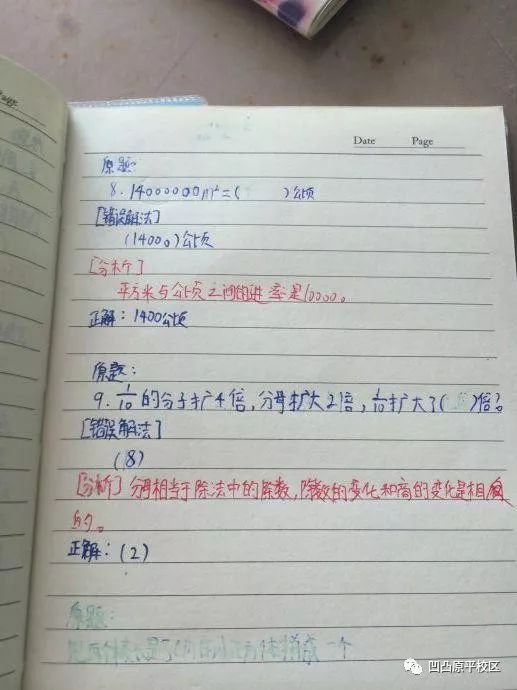 Date Page
原题:
8. 14000000m²=( )公顷
[错误解法]
(14000)公顷
[分析]
平方米与公顷之间的进率是10000。
正解:1400公顷
原题:
9. 1/10的分子扩4倍,分母扩大2倍,1/10扩大了( )倍?
[错误解法]
(8)
[分析]分母相当于除法中的除数,除数的变化和商的变化是相反
的。
正解:(2)
原题:
凹凸原平校区